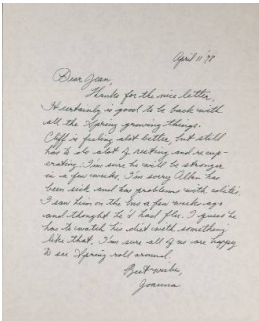 April 11 '98
Dear Jean,
Thanks for the nice letter.
It certainly is good to be back with
all the Spring growing things.
Cliff is feeling alot better, but still
has to do alot of resting and recup-
erating. I'm sure he will be stronger
in a few weeks. I'm sorry Allan has
been sick and has problems with colitis.
I saw him on the bus a few weeks ago
and thought he'd had flu. I guess he
has to watch his diet with something
like that. I'm sure all of us are happy
to see Spring roll around.
Best wishes,
Joanna